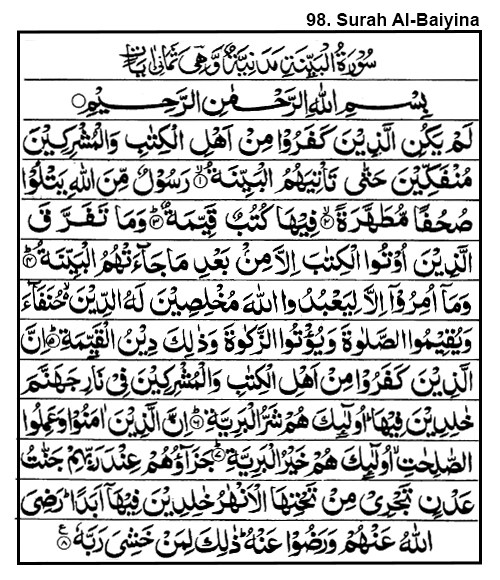 98. Surah Al-Baiyina
سُوْرَةُ الْبَيِّنَةِ مَدَنِيَّةٌ وَّهِىَ ثَمَانِىْ اٰيَاتٍ
بِسْمِ اللهِ الرَّحْمٰنِ الرَّحِيْمِ
لَمْ يَكُنِ الَّذِيْنَ كَفَرُوْا مِنْ اَهْلِ الْكِتٰبِ وَالْمُشْرِكِيْنَ
مُنْفَكِّيْنَ حَتّٰى تَاْتِيَهُمُ الْبَيِّنَةُ ۙ﴿۱﴾ رَسُوْلٌ مِّنَ اللهِ يَتْلُوْا
صُحُفًا مُّطَهَّرَةً ۙ﴿۲﴾ فِيْهَا كُتُبٌ قَيِّمَةٌ ؕ﴿۳﴾ وَمَا تَفَرَّقَ
الَّذِيْنَ اُوْتُوا الْكِتٰبَ اِلَّا مِنْۢ بَعْدِ مَا جَآءَتْهُمُ الْبَيِّنَةُ ؕ﴿۴﴾
وَمَاۤ اُمِرُوْۤا اِلَّا لِيَعْبُدُوا اللهَ مُخْلِصِيْنَ لَهُ الدِّيْنَ ۙ حُنَفَآءَ
وَيُقِيْمُوا الصَّلٰوةَ وَيُؤْتُوا الزَّكٰوةَ وَذٰلِكَ دِيْنُ الْقَيِّمَةِ ؕ﴿۵﴾ اِنَّ
الَّذِيْنَ كَفَرُوْا مِنْ اَهْلِ الْكِتٰبِ وَالْمُشْرِكِيْنَ فِىْ نَارِ جَهَنَّمَ
خٰلِدِيْنَ فِيْهَا ؕ اُولٰٓئِكَ هُمْ شَرُّ الْبَرِيَّةِ ؕ﴿۶﴾ اِنَّ الَّذِيْنَ اٰمَنُوْا وَعَمِلُوا
الصّٰلِحٰتِ ۙ اُولٰٓئِكَ هُمْ خَيْرُ الْبَرِيَّةِ ؕ﴿۷﴾ جَزَآؤُهُمْ عِنْدَ رَبِّهِمْ جَنّٰتُ
عَدْنٍ تَجْرِىْ مِنْ تَحْتِهَا الْاَنْهٰرُ خٰلِدِيْنَ فِيْهَاۤ اَبَدًا ؕ رَضِىَ
اللهُ عَنْهُمْ وَرَضُوْا عَنْهُ ؕ ذٰلِكَ لِمَنْ خَشِىَ رَبَّهٗ ﴿۸﴾ ع